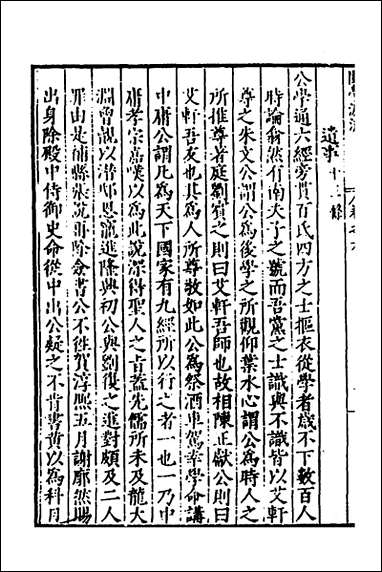 遺事十二條
公學通六經旁貫百氏四方之士摳衣從學者歲不下數百人
時論翕然有南夫子之號而吾黨之士識與不識皆以艾軒
尊之朱文公謂公為後學之所觀仰葉水心謂公為時人之
所推尊者庭劉賓之則曰艾軒吾師也故相陳正獻公則曰
艾軒吾友也其為人所尊敬如此公為祭酒車駕幸學命講
中庸公謂凡為天下國家有九經所以行之者一也一乃中
庸孝宗嘉嘆以為此說深得聖人之旨蓋先儒所未及龍大
淵曾覿以潛邸恩寵進隆興初公與劉復之進對頗及二人
罪由是補縣張說再除僉書公不往賀淳熙五月謝廓然賜
出身除殿中侍御史命從中出公疑之不肯書黃以為科目